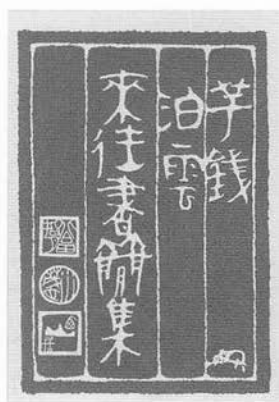 芋銭
泊雲
來往書簡集